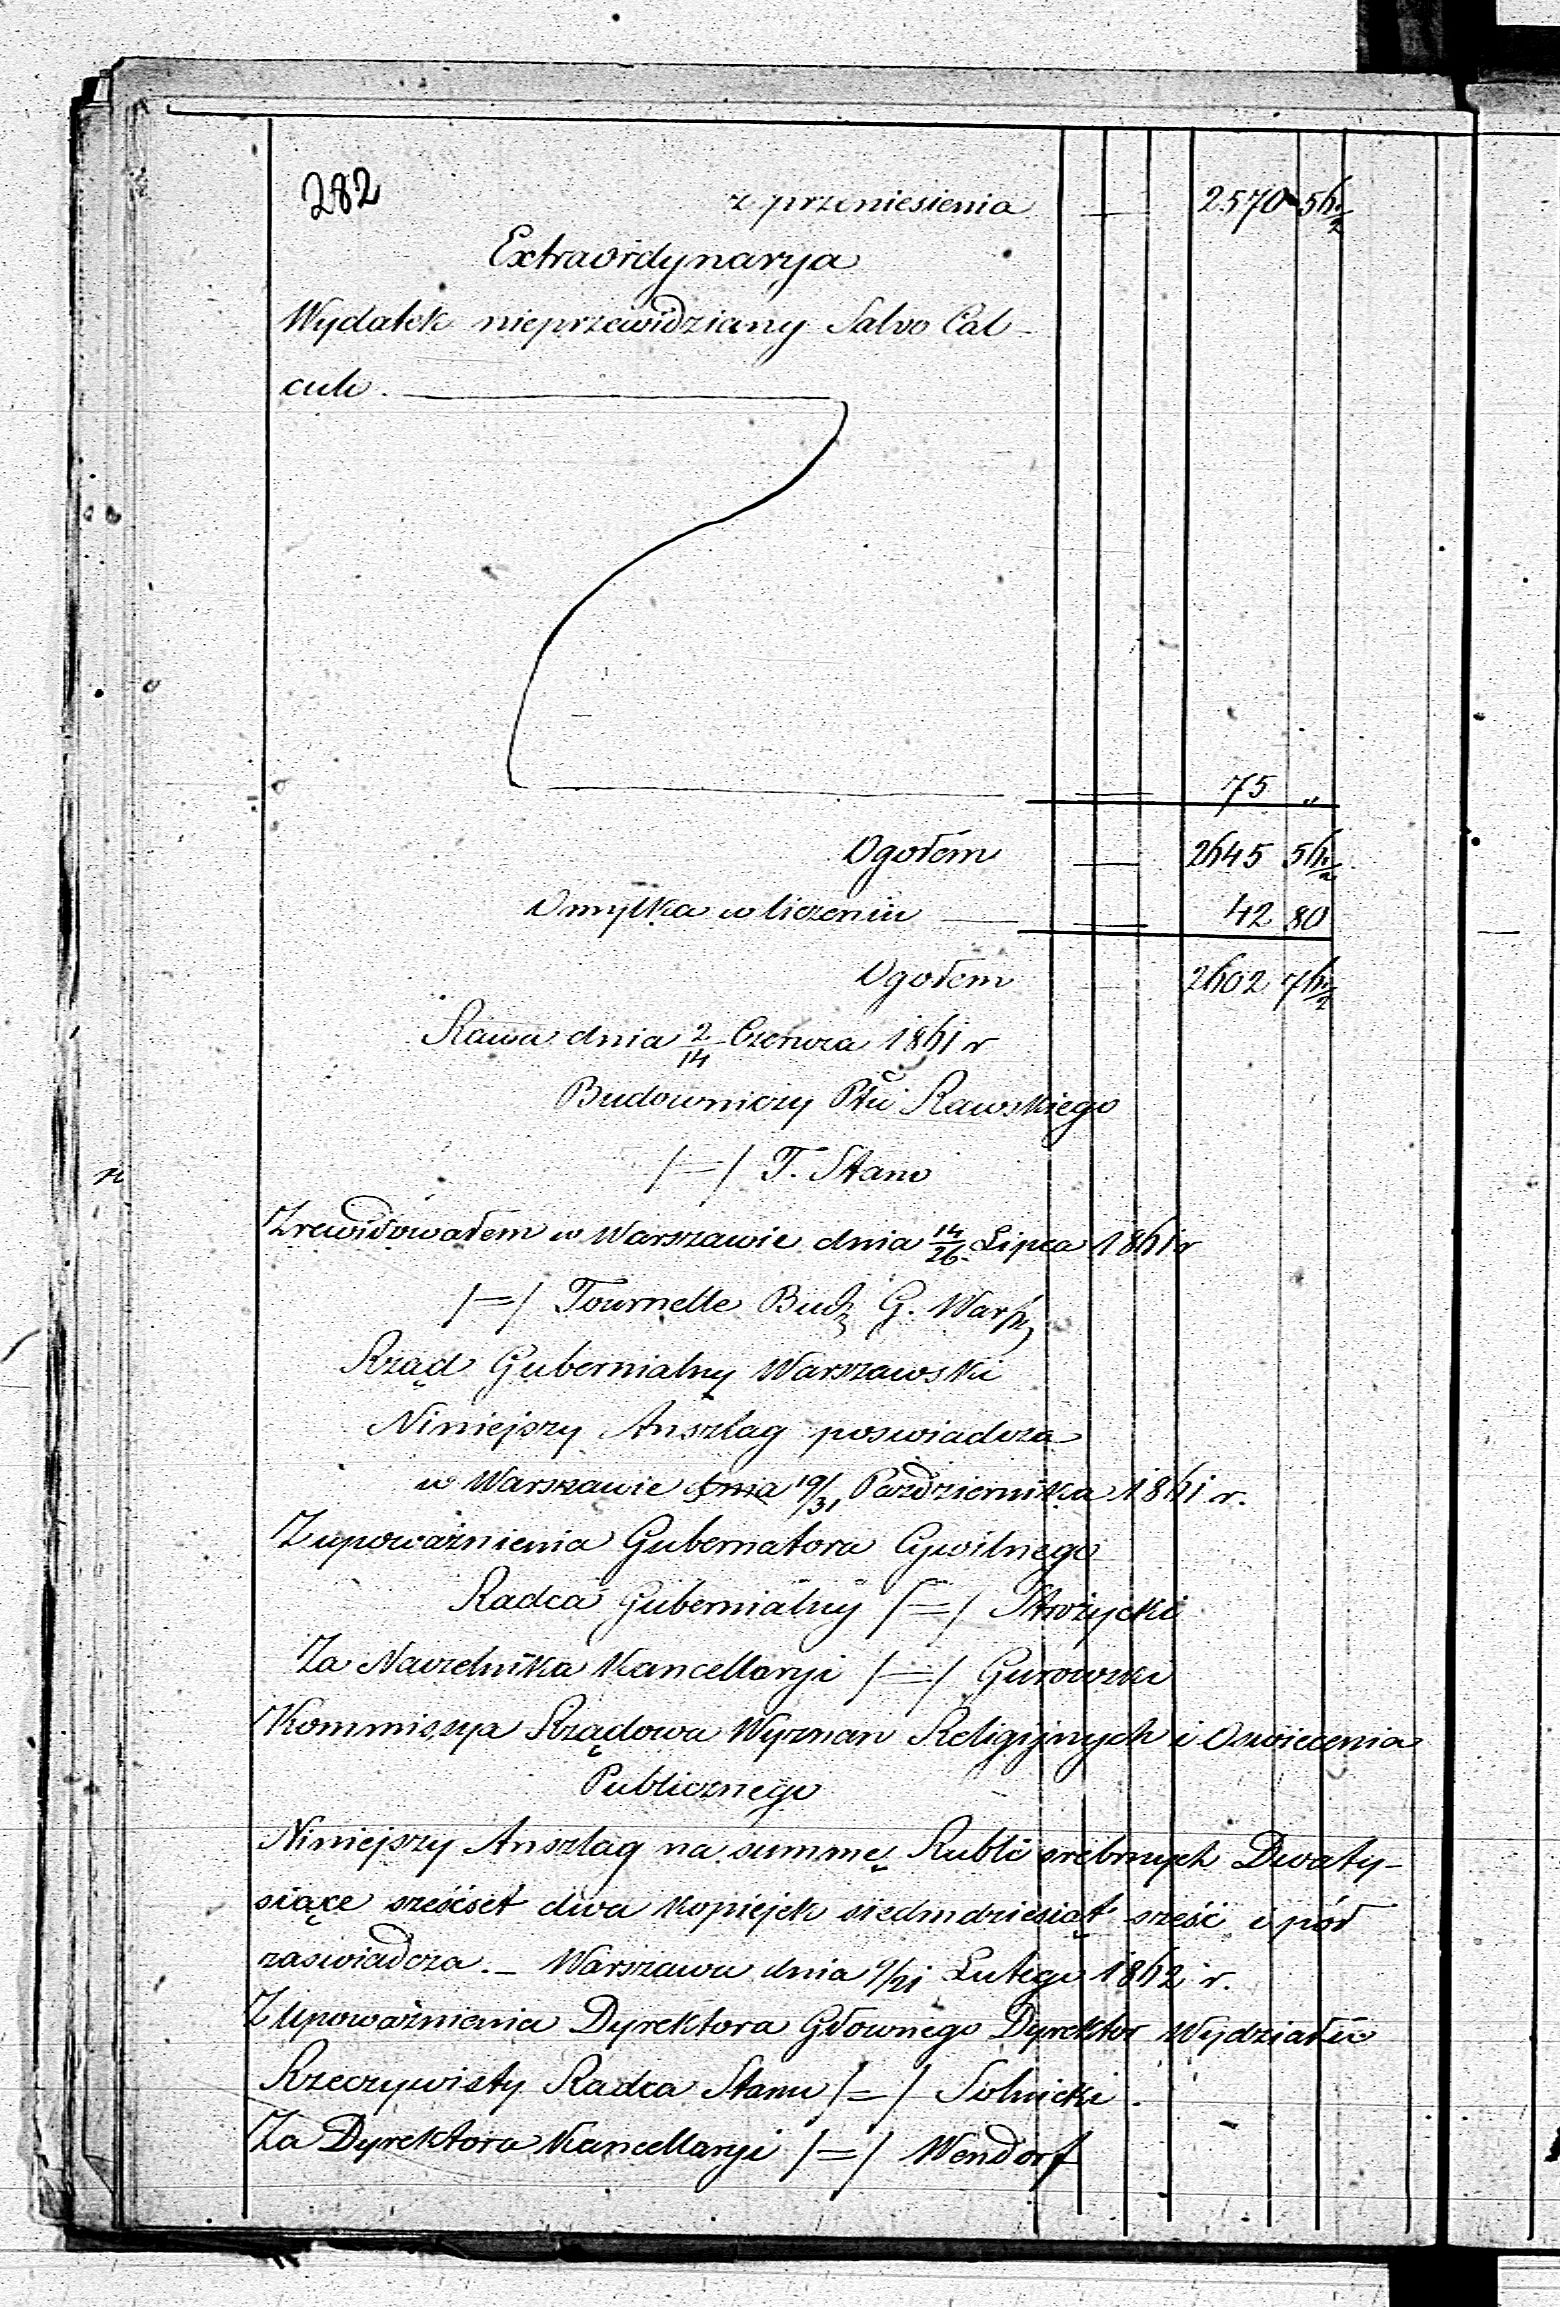 282
z przeniesienia — 2570 56 1/2
Extraordynarya
Wydatek nieprzewidziany Salvo Cal-
culo. —
— 75 „
Ogołem — 2645 56 1/2
Omyłka w liczeniu — 42 80
Ogołem 2602 76 1/2
Rawa dnia 2/14 Czerwca 1861 r
Budowniczy Ptu Rawskiego
/=/ T. Stam
Zrewidowałem w Warszawie dnia 14/26 Lipca 1861 r
/=/ Tournelle Bud. G. Warsz
Rząd Gubernialny Warszawski
Niniejszy Anszlag poswiadcza
w Warszawie dnia 19/31 Pazdziernika 1861 r.
Z upoważnienia Gubernatora Cywilnego
Radca Gubernialny /=/
Za Naczelnika Kancellaryi /=/ Gurowski
Kommissya Rządowa Wyznan Religijnych i Oswiecenia
Publicznego
Niniejszy Anszlag na summę Rubli srebrnych Dwaty-
siące sześćset dwa kopiejek siedmdziesiąt sześć i pół
zaswiadcza. – Warszawa dnia 9/21 Lutego 1862 r.
Z Upoważnienia Dyrektora Głownego Dyrektor Wydziału
Rzeczywisty Radca Stanu /=/ Solnicki.
Za Dyrektora Kancellaryi /=/ Wendorf